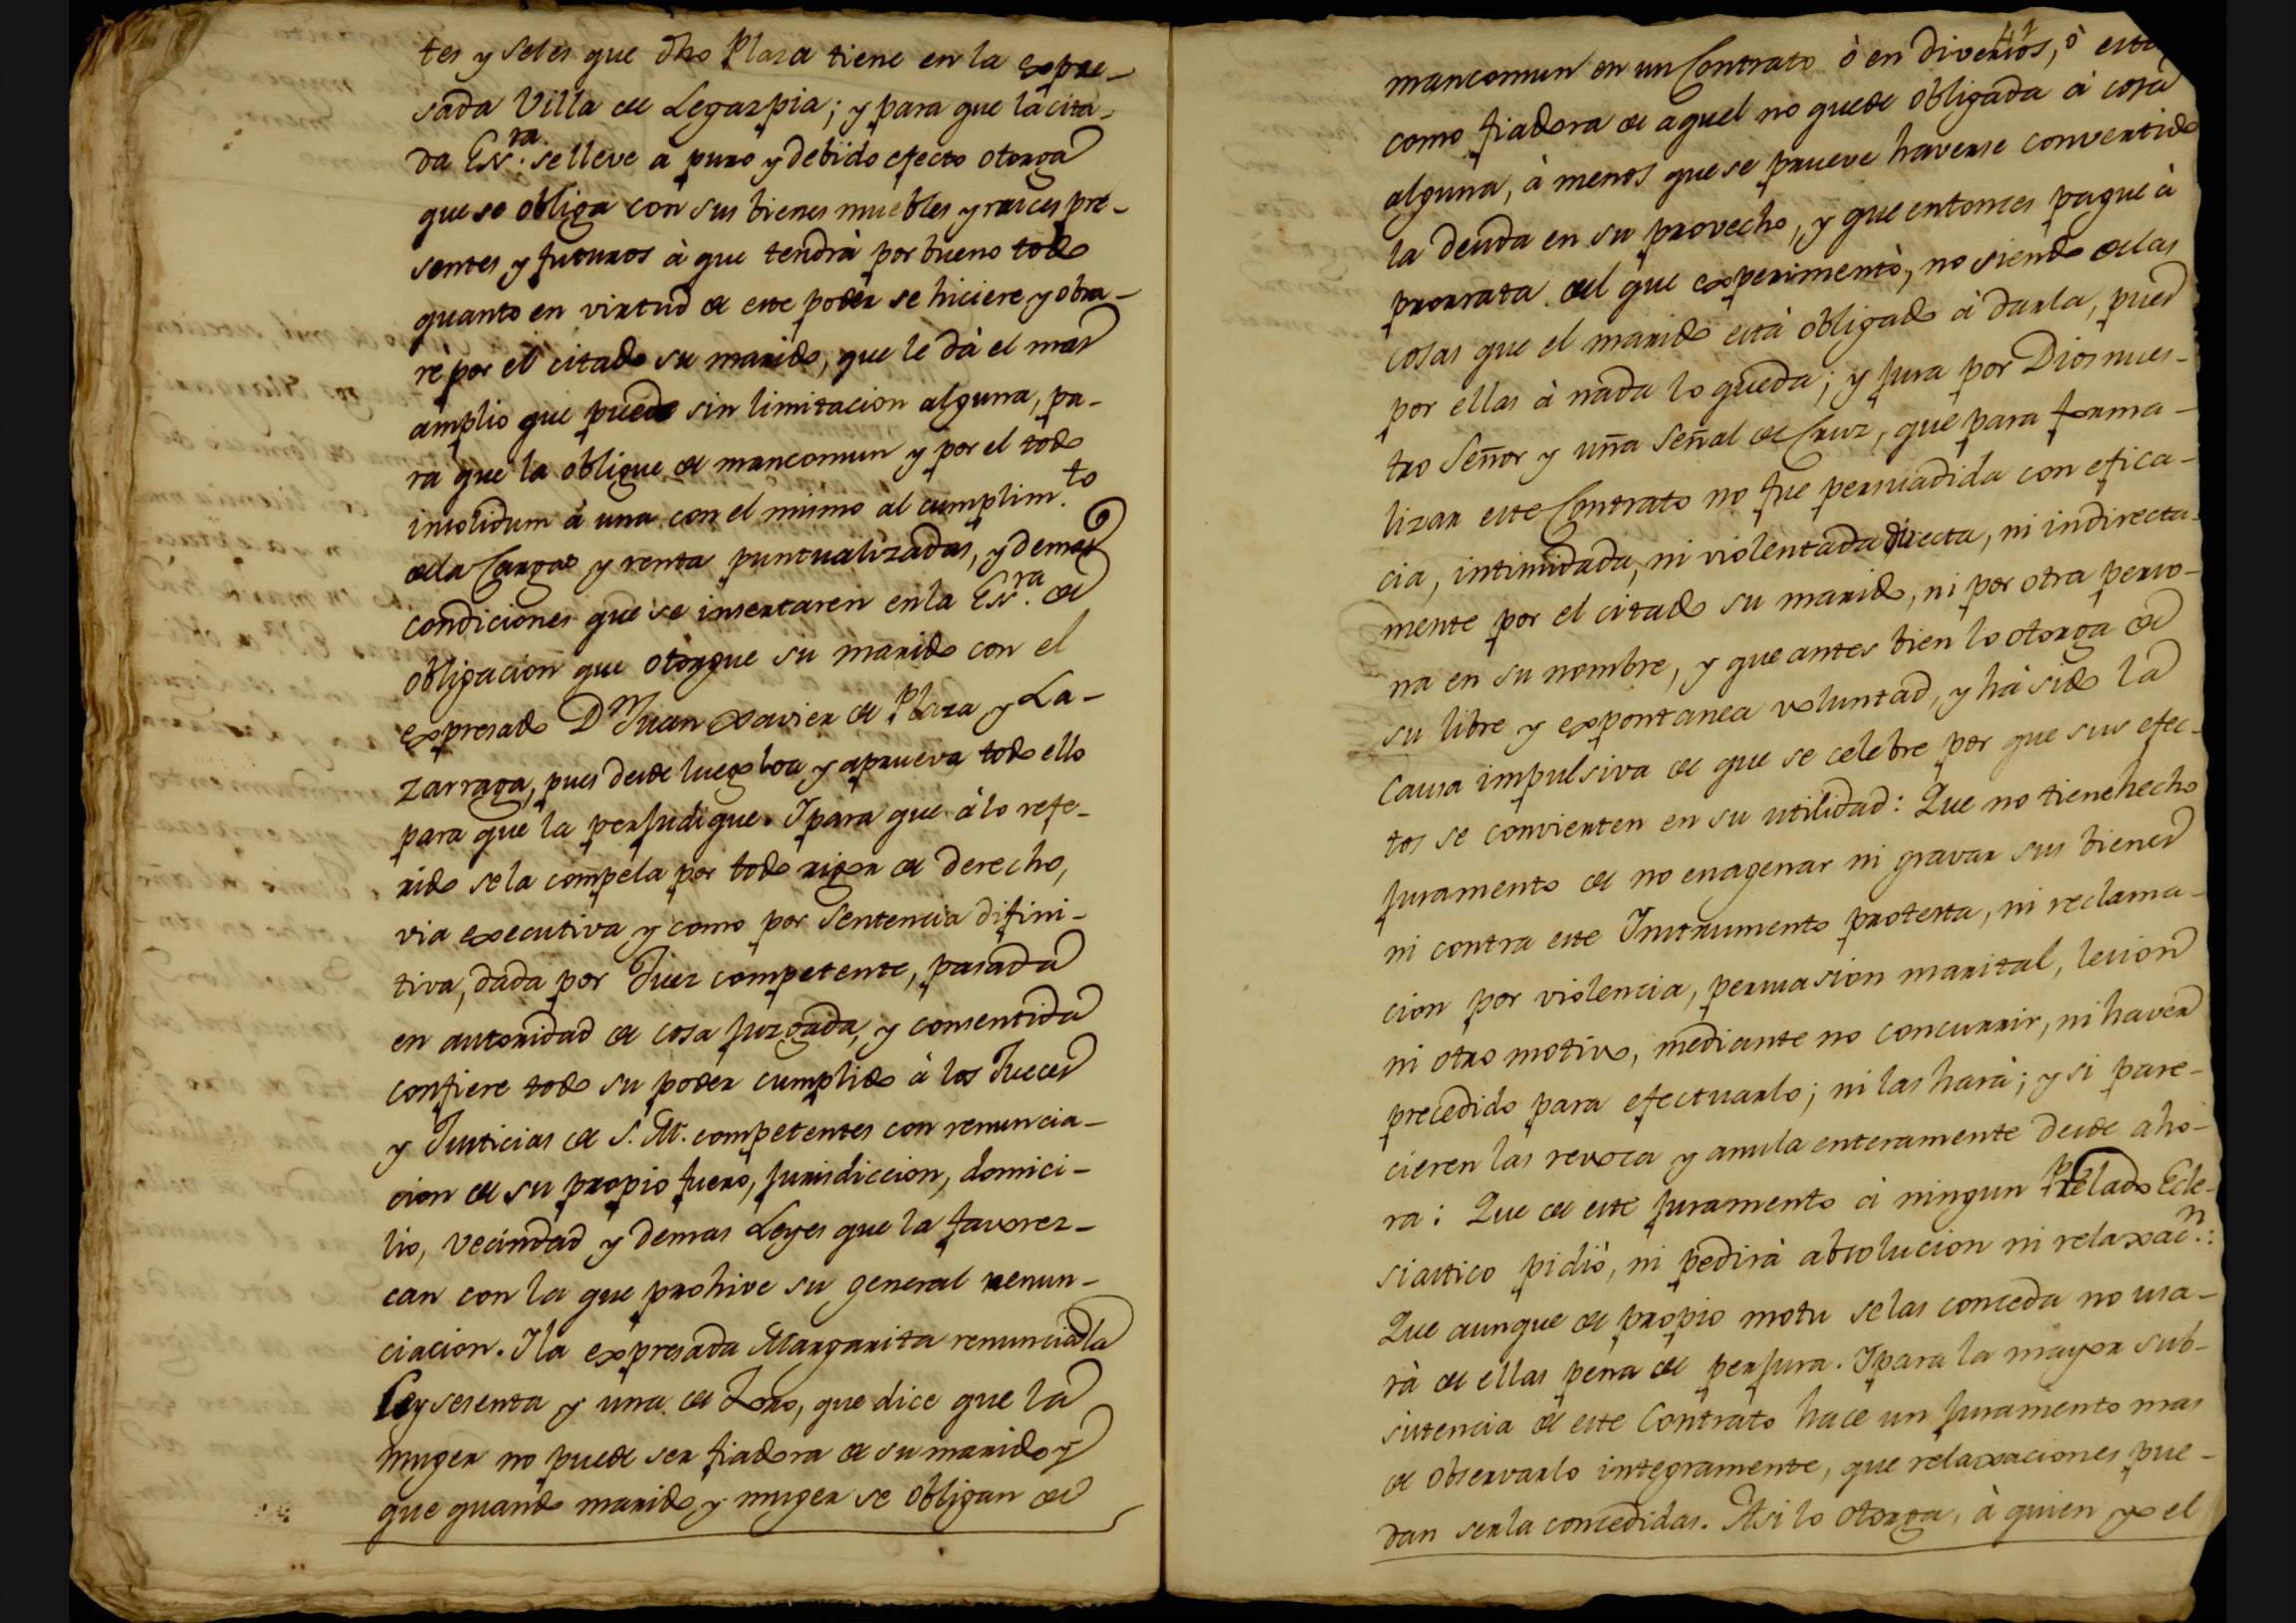 tes y seles que dho Plaza tiene en la expre-
sada Villa de Legazpia; y para que la cita-
da Esra. se lleve a puro y debido efecto otorga
que se obliga con sus bienes muebles y raices pre-
sentes y futuros à que tendrà por bueno todo
quanto en virtud de este poder se hiciere y obra-
rè por el citado su marido, que le dà el mas
amplio que puede sin limitacion alguna, pa-
ra que la obligue de mancomun y por el todo
insolidum à una con el mismo al cumplim.to
de la Carga y renta puntualizadas, y demas
condiciones que se insertaren en la Esra. de
obligacion que otorgue su marido con el
expresado Dn Juan Xavier de Plaza y La-
zarraga, pues desde luego loa y aprueva todo ello
para que la perjudique. Y para que à lo refe-
rido se la compela por todo rigor de derecho,
via executiva y como por Sentencia difini-
tiva, dada por Juez competente, pasada
en autoridad de cosa juzgada, y consentida
confiere todo su poder cumplido à los Jueces
y Justicias de S. M. competentes con renuncia-
cion de su propio fuero, jurisdiccion, domici-
lio, vecindad y demas Leyes que la favorez-
can con la que prohive su general renun-
ciacion. Y la expresada Margarita renuncia la
Ley sesenta y una de Toro, que dice que la
muger no puede ser fiadora de su marido y
que quando marido y muger se obligan de
mancomun en un Contrato ò en diversos, ò esta
como fiadora de aquel no quede obligada à cosa
alguna, à menos que se prueve haverse convertido
la deuda en su provecho, y que entonces pague à
prorrata del que experimentò, no siendo de las
cosas que el marido està obligado à darla, pues
por ellas à nada lo queda; y jura por Dios nues-
tro Señor y uña Señal de Cruz, que para forma-
lizar este Contrato no fue persuadida con efica-
cia, intimidada, ni violentada directa, ni indirecta-
mente por el citado su marido, ni por otra perso-
na en su nombre, y que antes bien lo otorga de
su libre y expontanea voluntad, y hà sido la
causa impulsiva de que se celebre por que sus efec-
tos se convierten en su utilidad: Que no tiene hecho
juramento de no enagenar ni gravar sus bienes
ni contra este Instrumento protesta, ni reclama-
cion por violencia, persuasion marital, lesion
ni otro motivo, mediante no concurrir, ni haver
precedido para efectuarlo; ni las harà; y si pare-
cieren las revoca y anula enteramente desde aho-
ra: Que de este juramento à ningun Prelado Ecle-
siastico pidiò, ni pedirà absolucion ni relaxac.n:
Que aunque de propio motu se las conceda no usa-
rà de ellas pena de perjura. Y para la mayor sub-
sistencia de este Contrato hace un juramento mas
de observarlo integramente, que relaxaciones pue-
dan serla concedidas. Asi lo otorga, à quien yo el